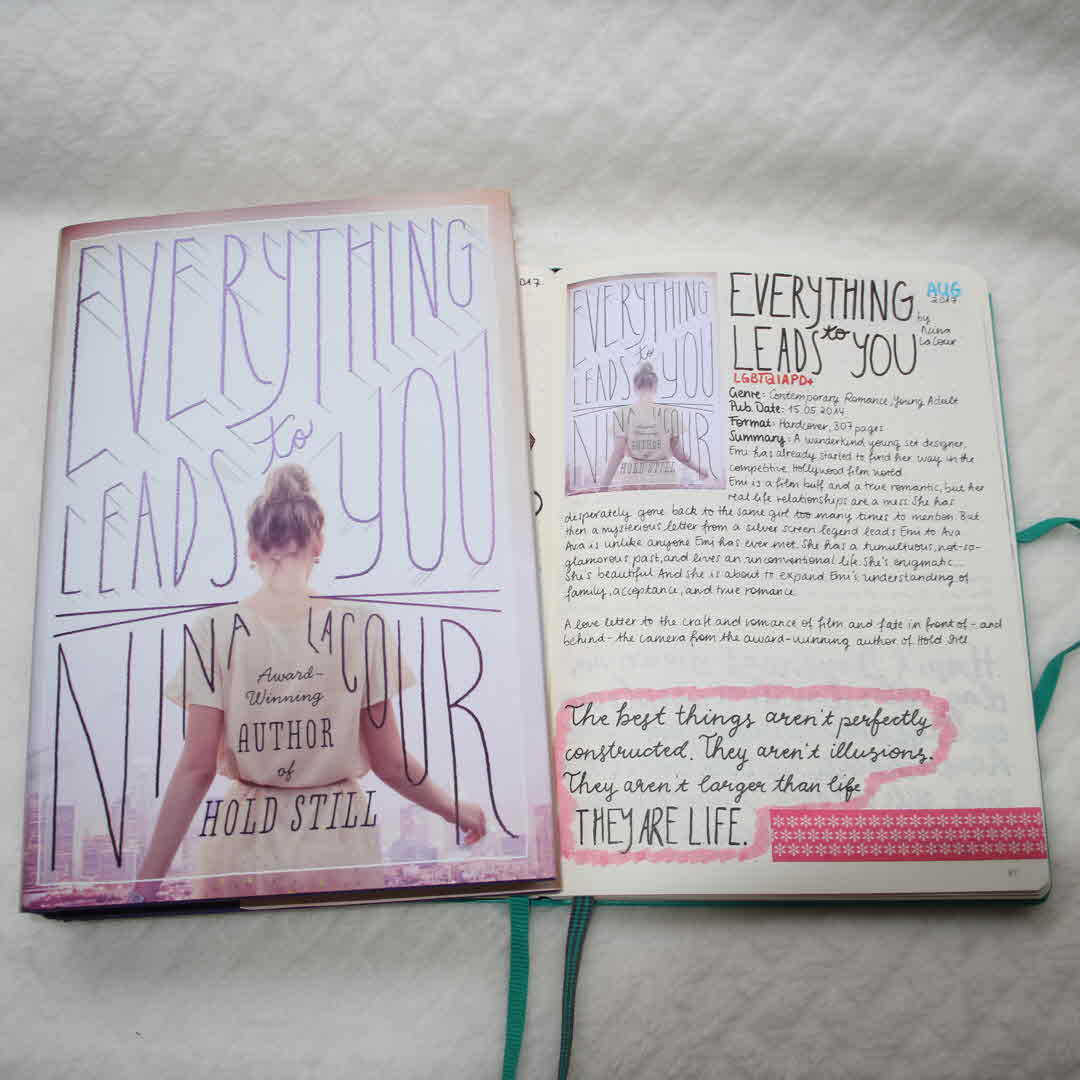 EVERYTHING
LEADS to YOU
NINA LACOUR
Award-
Winning
AUTHOR
of
HOLD STILL
017.
EVERYTHING
to
LEADS YOU
NINA LACOUR
AUTHOR
of
HOLD STILL
EVERYTHING
LEADS to YOU
by
Nina
LaCour
AUG
2017
LGBTQIAPD+
Genre: Contemporary Romance, Young Adult
Pub. Date: 15.05.2014
Format: Hardcover, 307 pages
Summary: A wunderkind young set designer,
Emi has already started to find her way in the
competitive Hollywood film world.
Emi is a film buff and a true romantic, but her
real life relationships are a mess. She has
desperately gone back to the same girl too many times to mention. But
then a mysterious letter from a silver screen legend leads Emi to Ava
Ava is unlike anyone Emi has ever met. She has a tumultuous, not-so-
glamorous past, and lives an unconventional life. She's enigmatic...
She's beautiful. And she is about to expand Emi's understanding of
family, acceptance, and true romance.
A love letter to the craft and romance of film and fate in front of - and
behind - the camera from the award-winning author of Hold Still.
The best things aren't perfectly
constructed. They aren't illusions.
They aren't larger than life
THEY ARE LIFE.